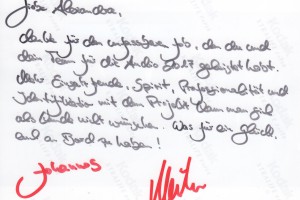 Liebe Alexandra,
danke für den unfassbaren Job, den du und
dein Team für die Audio 2017 geleistet habt.
diese Engelsgeduld, Spirit, Professionalität und
Identifikation mit dem Projekt kann man sich
als Kunde nicht wünschen. Was für ein Glück,
euch an Bord zu haben!
Johannes